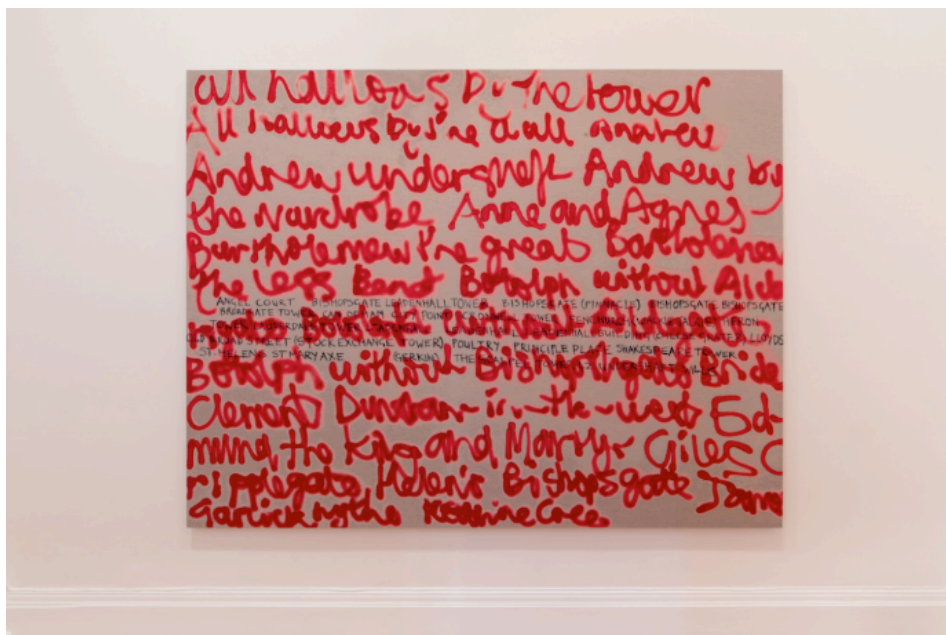 all hallows by the tower
All hallows by the wall Andrew
Andrew undershaft Andrew by
the wardrobe Anne and Agnes
Bartholomew the great Bartholomew
the Less Benet Botolph without Alde
ANGEL COURT BISHOPSGATE LEADENHALL TOWER BISHOPSGATE (PINNACLE) BISHOPSGATE BISHOPSGATE
BROADGATE TOWER CITY POINT CROMWELL TOWER FENCHURCH HERON
TOWER LAUDERDALE TOWER LEADENHALL LEADENHALL BUILDING (CHEESE GRATER) LLOYDS
OLD BROAD STREET (STOCK EXCHANGE TOWER) POULTRY PRINCIPLE PLACE SHAKESPEARE TOWER
ST. HELENS ST MARY AXE (GERKIN) THE
Botolph without Bishopsgate Bride
Clement Dunstan-in-the-west Ed-
mund the King and Martyr Giles C
ripplegate Helen's Bishopsgate James
Garlickhythe Katherine Cree